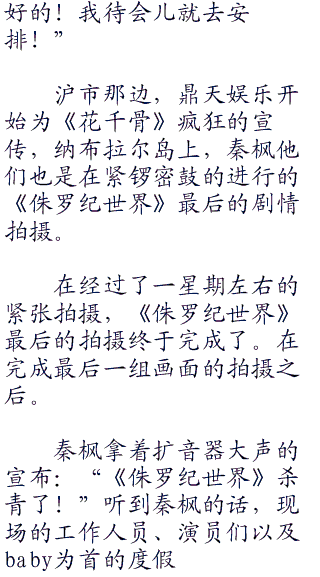 好的！我待会儿就去安
排！”
沪市那边，鼎天娱乐开
始为《花千骨》疯狂的宣
传，纳布拉尔岛上，秦枫他
们也是在紧锣密鼓的进行的
《侏罗纪世界》最后的剧情
拍摄。
在经过了一星期左右的
紧张拍摄，《侏罗纪世界》
最后的拍摄终于完成了。在
完成最后一组画面的拍摄之
后。
秦枫拿着扩音器大声的
宣布：“《侏罗纪世界》杀
青了！”听到秦枫的话，现
场的工作人员、演员们以及
baby为首的度假